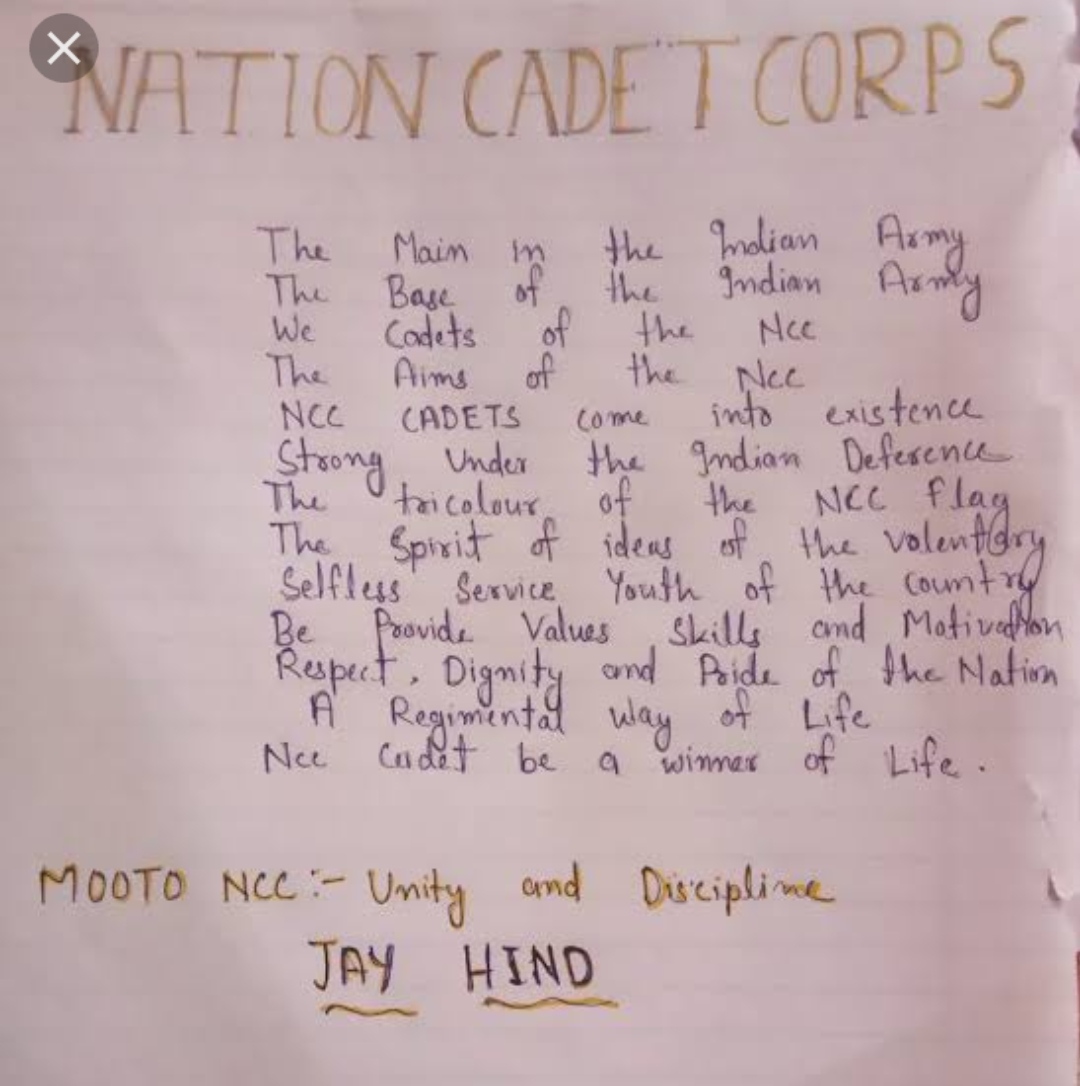 NATION CADET CORPS
The Main in the Indian Army
The Base of the Indian Army
We Cadets of the NCC
The Aims of the NCC
NCC CADETS come into existence
Strong Under the Indian Deference
The tricolour of the NCC flag
The Spirit of ideas of the volentary
Selfless Service Youth of the country
Be Provide Values Skills and Motivation
Respect, Dignity and Pride of the Nation
A Regimental way of Life
Ncc Cadet be a winner of Life.
MOOTO NCC:- Unity and Discipline
JAY HIND